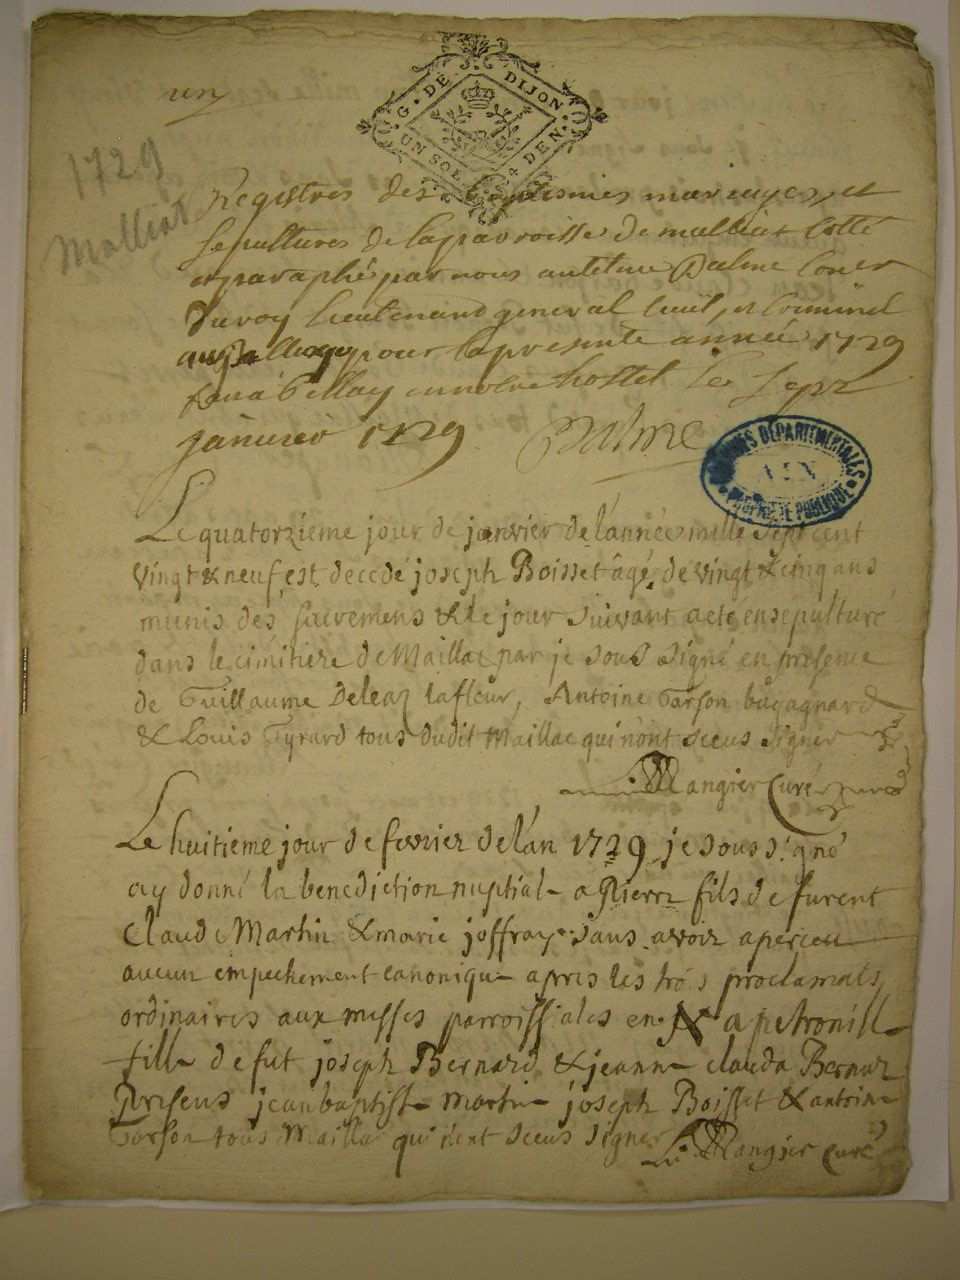 un
G. DE DIJON
UN SOL 4 DEN.
1729
Malliat
Registres des Baptesmes mariages, et
sepultures de la parroisse de malliat Cotté
et paraphé par nous anteline Balme Coner
du roy Lieutenant general Civil, et Criminel
au pour la presente année 1729
fait a Bellay en nostre hostel le sept
janvier 1729 Balme
ARCHIVES DÉPARTEMENTALES
AIN
PROPRIÉTÉ PUBLIQUE
Le quatorzieme jour de janvier de lànnée mille sept cent
vingt & neuf est decedé joseph Boisset âgé de vingt & cinq ans
munis des sacremens & le jour suivant a eté ensepulturé
dans le cimitiere de Maillac par je sous signé en presence
de Guillaume Deleaz lafleur, Antoine Garson bugagnard
& Louis Gyrard tous dudit Maillac qui n'ont sceus signer
Mangier Curé
Le huitieme jour de fevrier de làn 1729 je sous signé
ay donné la benediction nuptial a Pierre fils de furent
Claude Martin & marie joffray sans avoir aperceu
aucun empechement canonique apres les trois proclamats
ordinaires aux messes parroissiales en N a petronill
fille de fut joseph Bernard & jeanne clauda Bernar
Presens jean baptist martin joseph Boisset & antoine
Garson tous Maillac qui n'ont sceus signer
Mangier curé